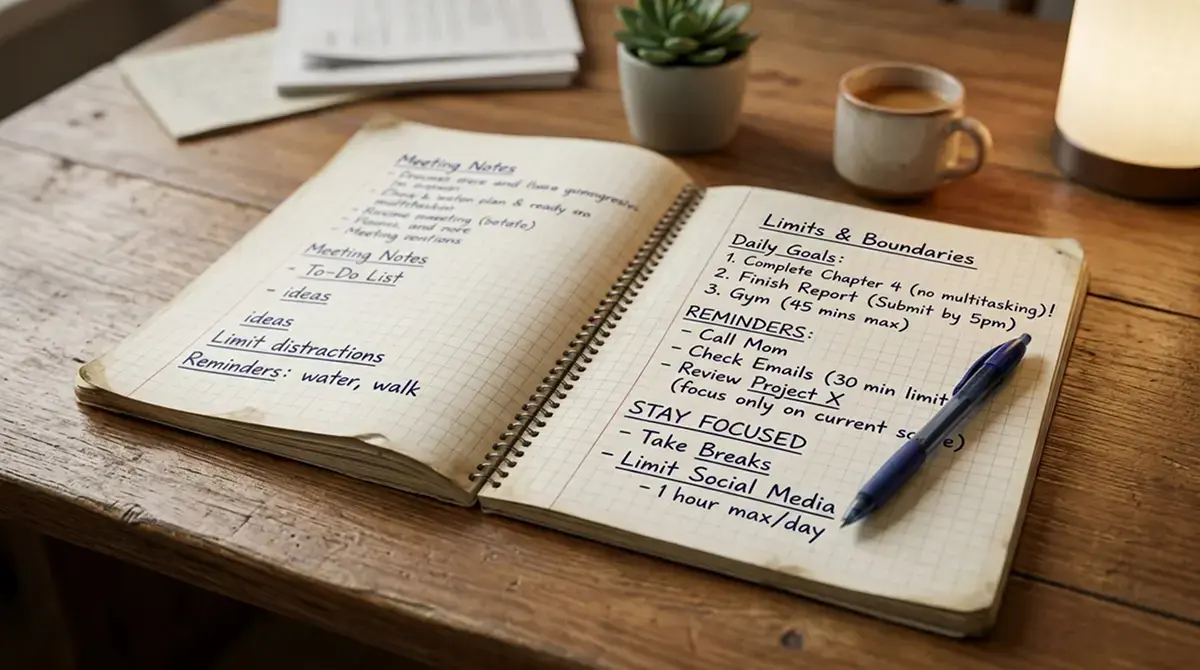 Meeting Notes
multitasking
- Meeting
Meeting Notes
- To-Do List
- ideas
ideas
Limit distractions
Reminders: water, walk
Limits & Boundaries
Daily Goals:
1. Complete Chapter 4 (no multitasking)!
2. Finish Report (Submit by 5pm)
3. Gym (45 mins max)
REMINDERS:
- Call Mom
- Check Emails (30 min limit
- Review Project X
(focus only on current
STAY FOCUSED
- Take Breaks
- Limit Social Media
- 1 hour max/day